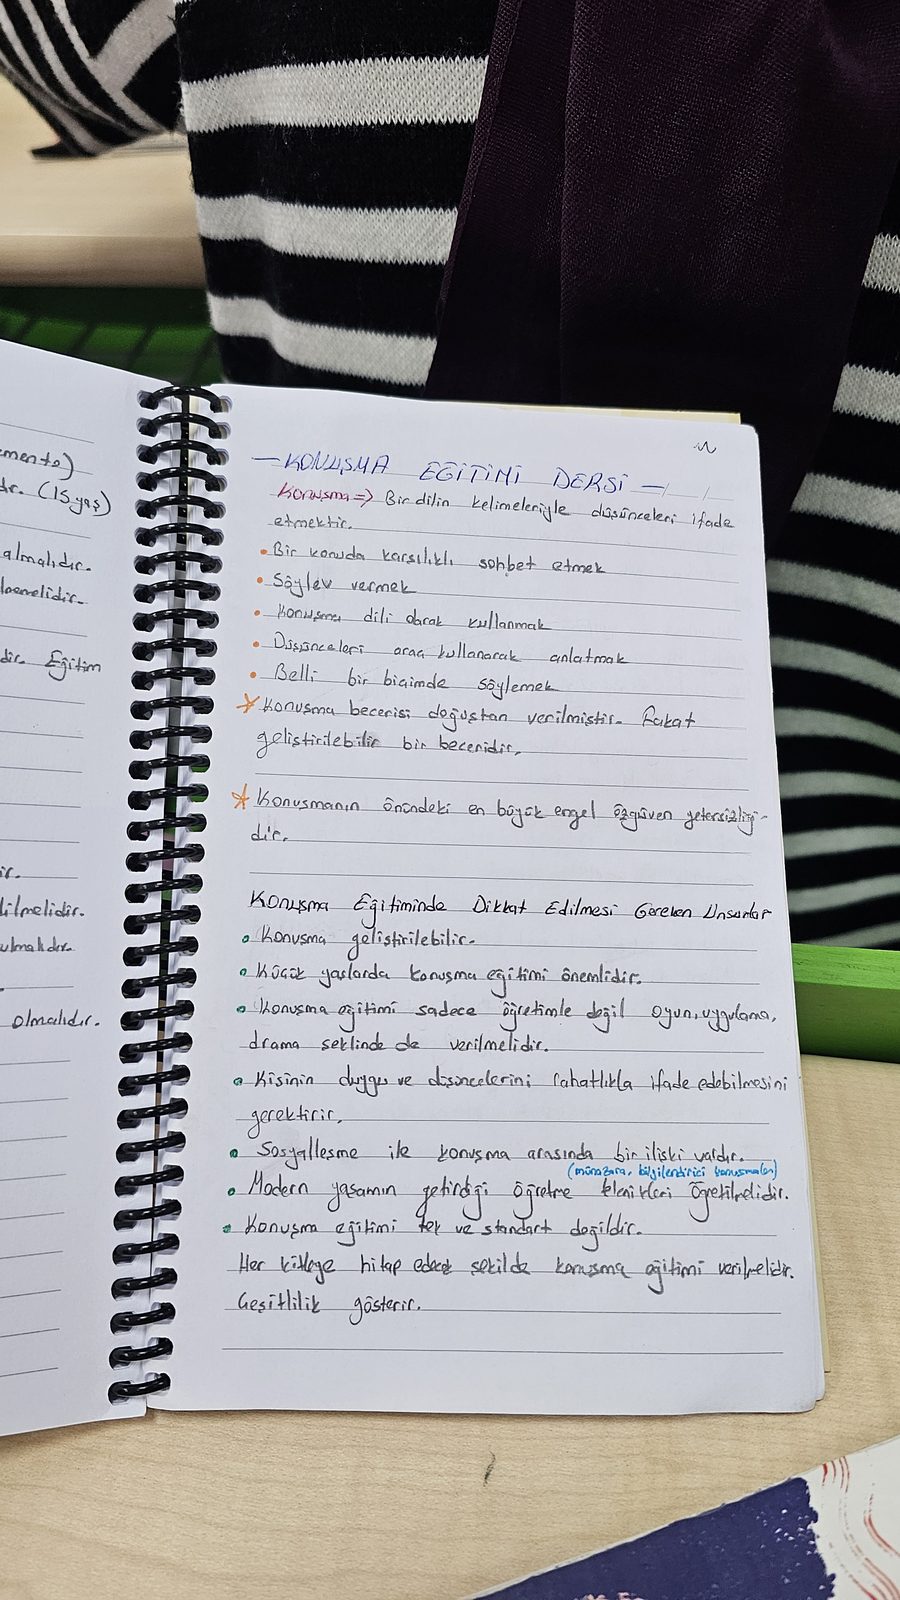 emente)
dır. (15 yaş)
almalıdır.
lenmelidir.
dir. Eğitim
ir.
dilmelidir.
ulmalıdır.
olmalıdır.
— KONUŞMA EĞİTİMİ DERSİ —
Konuşma => Bir dilin kelimeleriyle düşünceleri ifade
etmektir.
• Bir konuda karşılıklı sohbet etmek
• Söylev vermek
• Konuşma dili olarak kullanmak
• Düşünceleri araç kullanarak anlatmak
• Belli bir biçimde söylemek
* Konuşma becerisi doğuştan verilmiştir. Fakat
geliştirilebilir bir beceridir.
* Konuşmanın önündeki en büyük engel özgüven yetersizliği-
dir.
Konuşma Eğitiminde Dikkat Edilmesi Gereken Unsurlar
• Konuşma geliştirilebilir.
• Küçük yaşlarda konuşma eğitimi önemlidir.
• Konuşma eğitimi sadece öğretimle değil oyun, uygulama,
drama şeklinde de verilmelidir.
• Kişinin duygu ve düşüncelerini rahatlıkla ifade edebilmesini
gerektirir.
• Sosyalleşme ile konuşma arasında bir ilişki vardır.
(münazara, bilgilendirici konuşmalar)
• Modern yaşamın getirdiği öğretme teknikleri öğretilmelidir.
• Konuşma eğitimi tek ve standart değildir.
Her kitleye hitap edecek şekilde konuşma eğitimi verilmelidir.
Çeşitlilik gösterir.